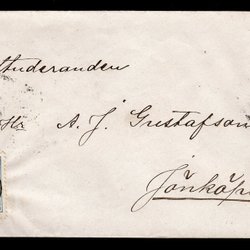 Studeranden
Hr A. J. Gustafson
Jönköp